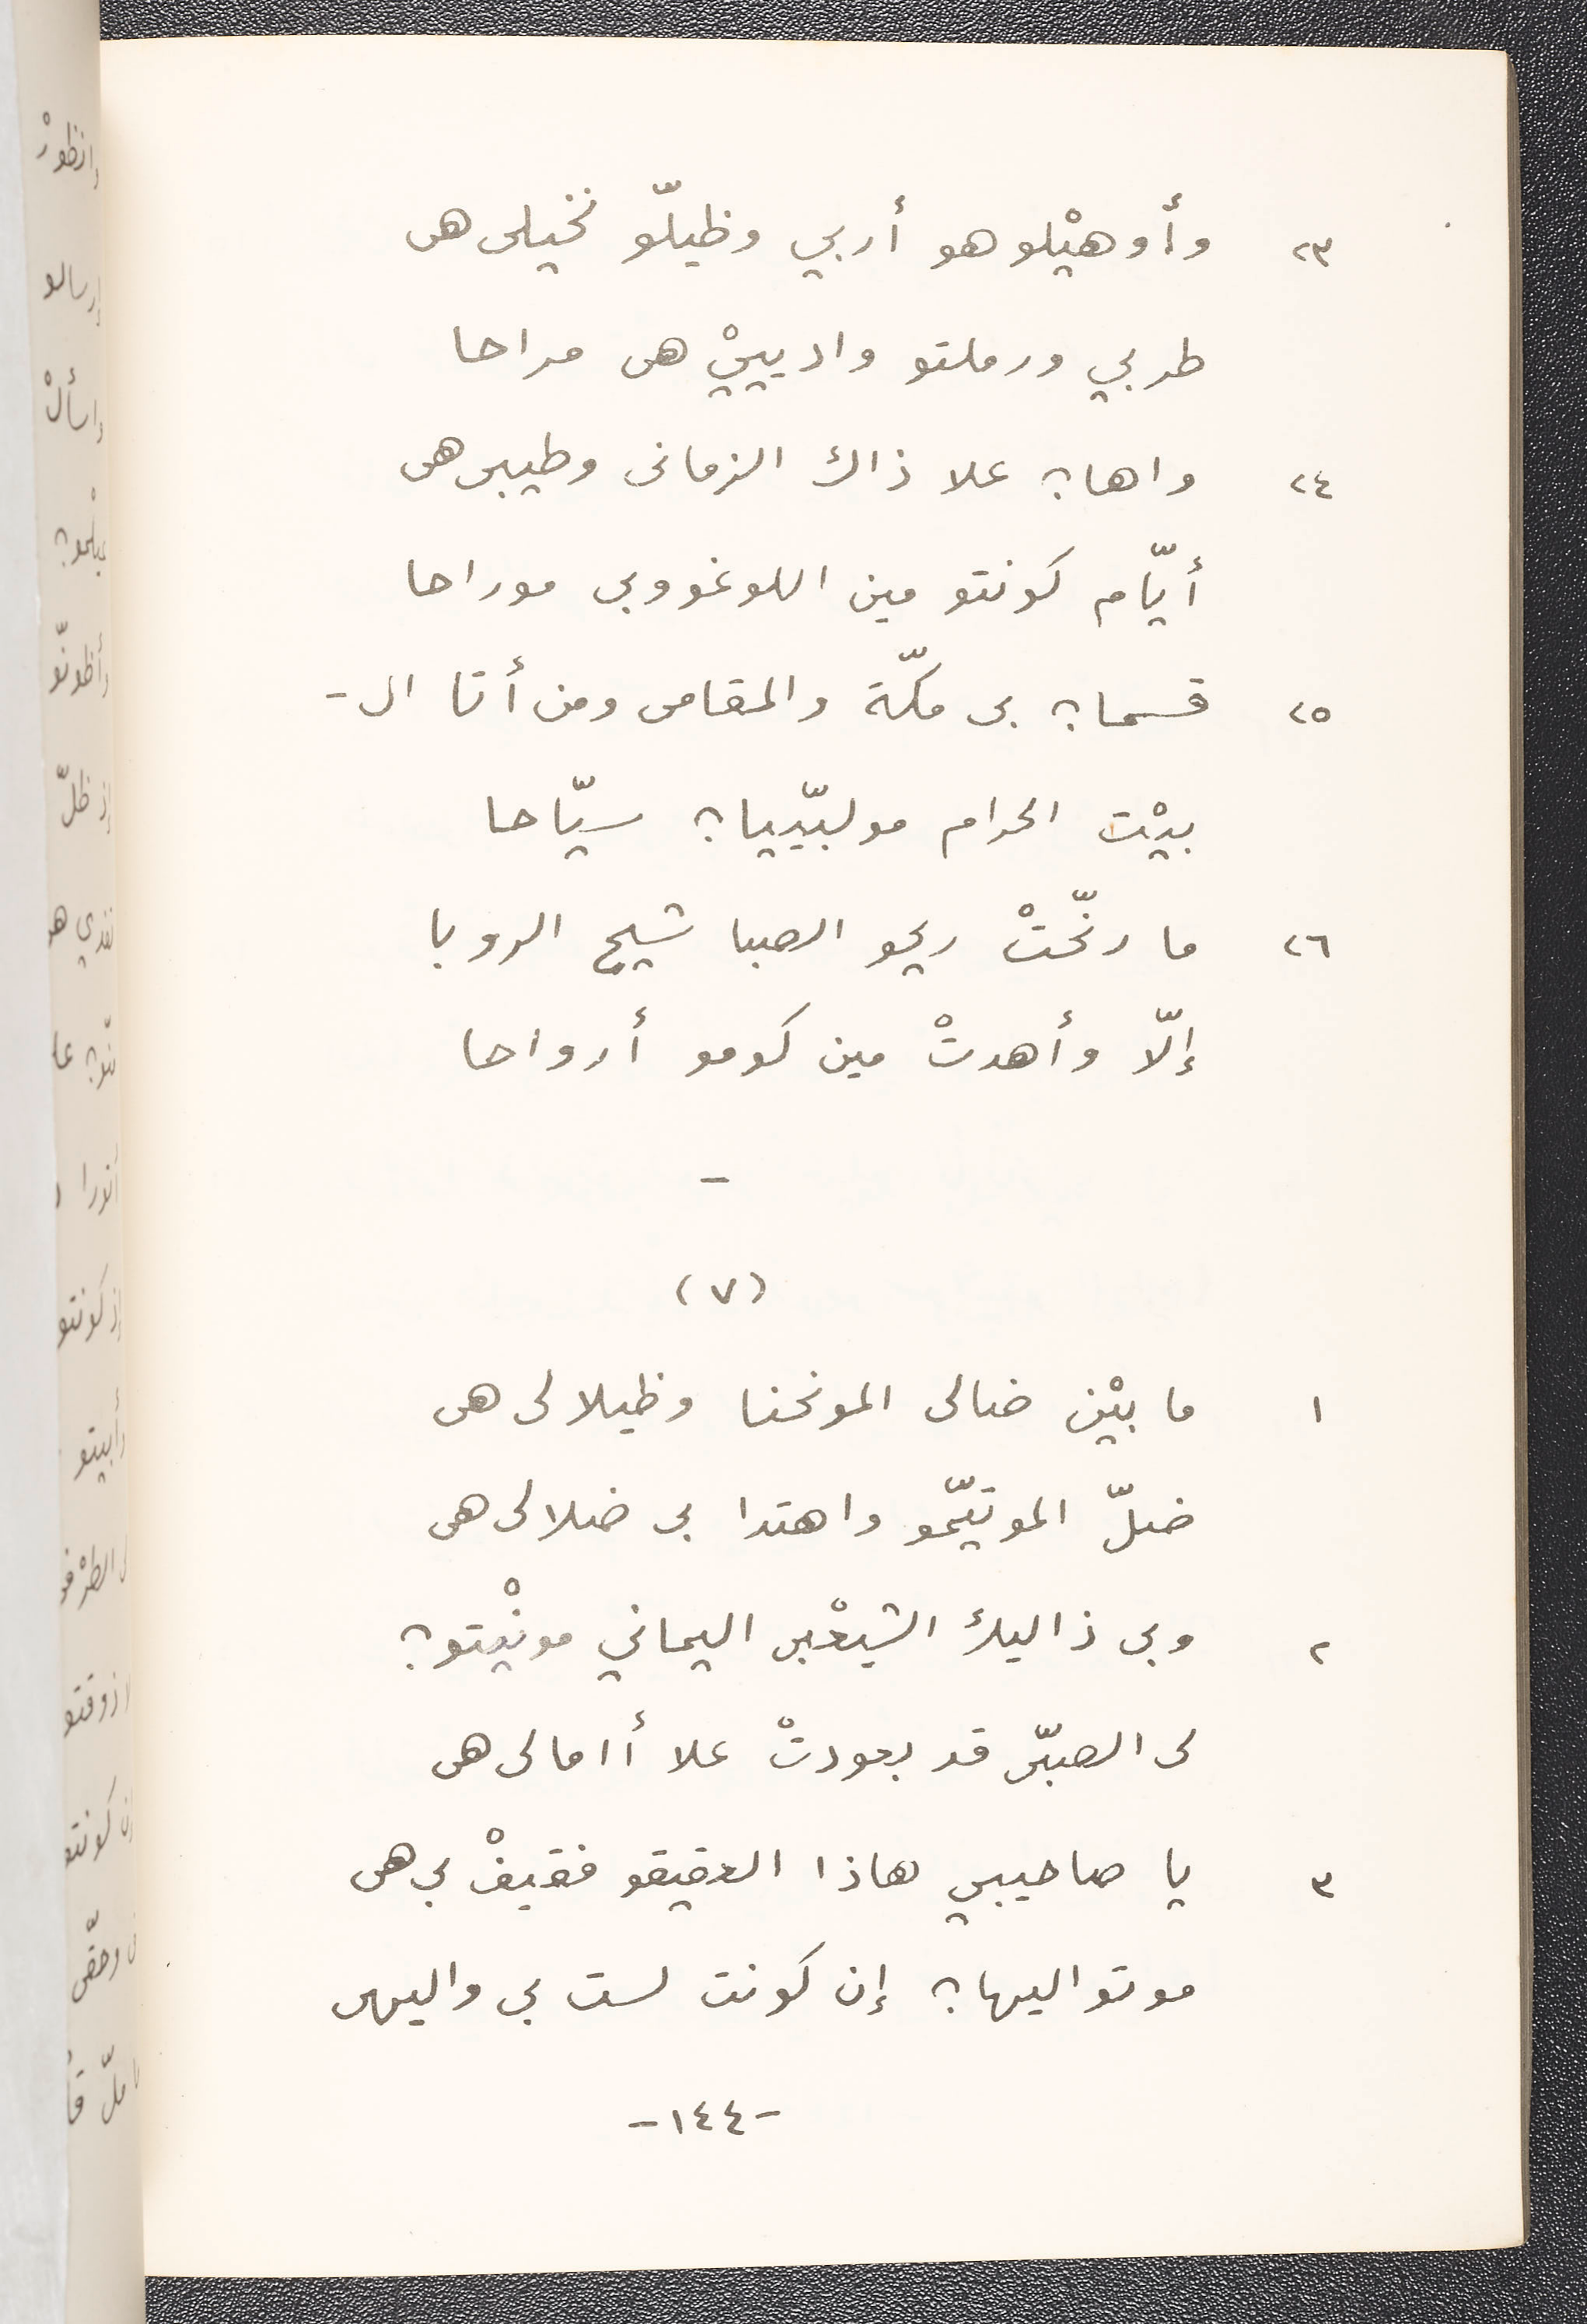 ٢٣ وأوهيْلو هو أربي وظيلّو نخيلى هى
طربي ورملتو واديييْ هى مراحا
٢٤ واها؟ علا ذاك الزمانى وطيبى هى
أيّام كونتو مين اللوغووبى موراحا
٢٥ قسما؟ بى مكّة والمقامى ومن أتا ال-
بيْت الحرام مولبّييا؟ سيّاحا
٢٦ ما رنّحتْ ريحو الصبا شيح الروبا
إلّا وأهدتْ مين كومو أرواحا
-
(٧)
١ ما بيْن ضالى المونحنا وظيلالى هى
ضلّ الموتيّمو واهتدا بى ضلالى هى
٢ وبى ذاليك الشيعْبى اليماني مونْيتو؟
لى الصبّى قد بعودتْ علا أامالى هى
٣ يا صاحيبي هاذا العقيقو فقيفْ بي هى
موتواليها؟ إن كونت لست بي واليهى
-١٤٤-